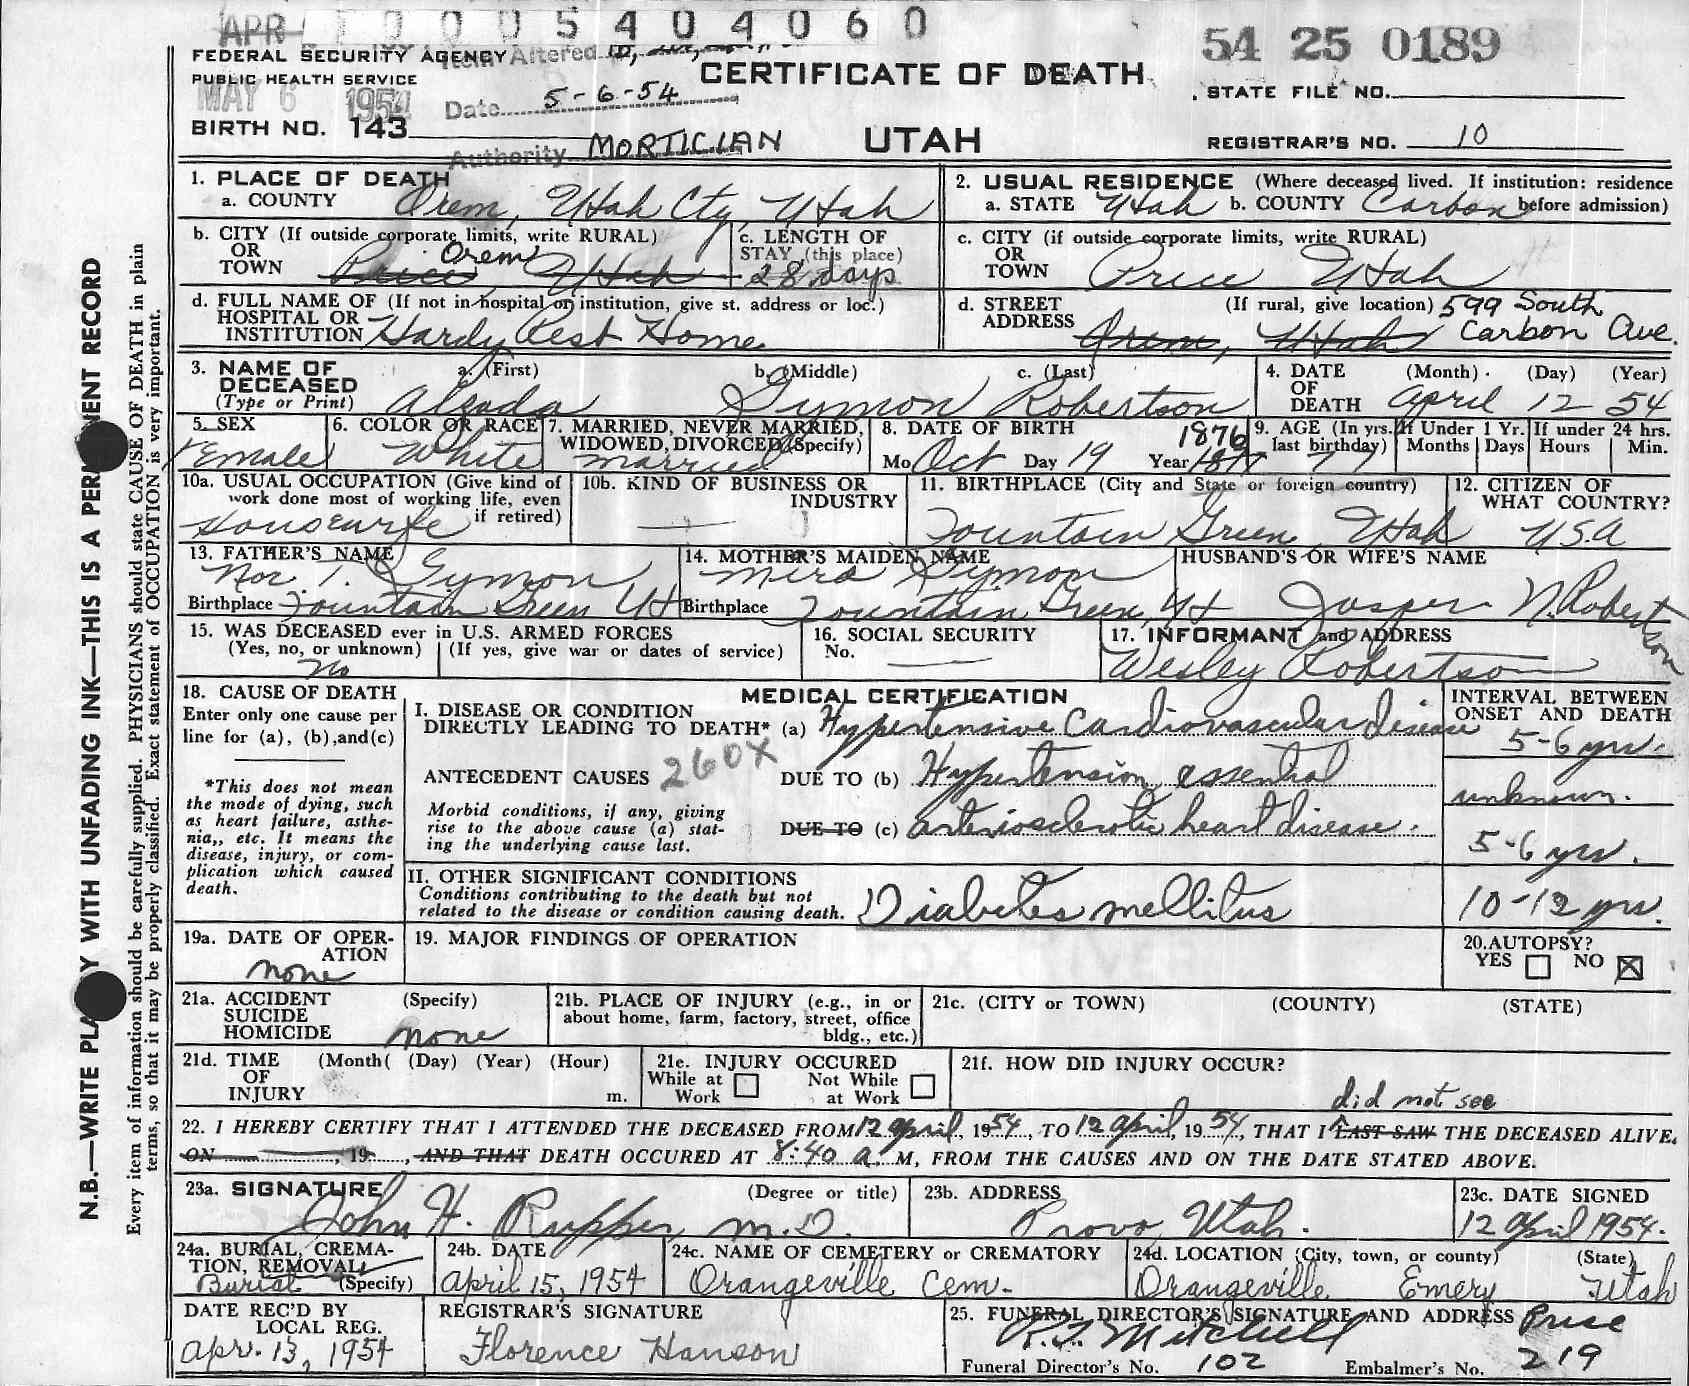 APR 1 0005404060
54 25 0189
FEDERAL SECURITY AGENCY Item Altered
PUBLIC HEALTH SERVICE
MAY 6 1954 Date 5-6-54
CERTIFICATE OF DEATH
STATE FILE NO.
BIRTH NO. 143
Authority MORTICIAN
UTAH
REGISTRAR'S NO. 10
N.B.—WRITE PLAINLY WITH UNFADING INK—THIS IS A PERMANENT RECORD
Every item of information should be carefully supplied. PHYSICIANS should state CAUSE OF DEATH in plain
terms, so that it may be properly classified. Exact statement of OCCUPATION is very important.
1. PLACE OF DEATH
a. COUNTY Orem, Utah Cty, Utah
2. USUAL RESIDENCE (Where deceased lived. If institution: residence
a. STATE Utah b. COUNTY Carbon before admission)
b. CITY (If outside corporate limits, write RURAL)
OR
TOWN Price Orem Utah
c. LENGTH OF
STAY (this place)
28 days
c. CITY (if outside corporate limits, write RURAL)
OR
TOWN Price Utah
d. FULL NAME OF (If not in hospital or institution, give st. address or loc.)
HOSPITAL OR
INSTITUTION Hardy Rest Home
d. STREET (If rural, give location) 599 South
ADDRESS Orem, Utah Carbon Ave.
3. NAME OF DECEASED
(Type or Print)
a. (First) b. (Middle) c. (Last)
Alzada Gymon Robertson
4. DATE OF DEATH (Month) (Day) (Year)
April 12 54
5. SEX
Female
6. COLOR OR RACE
White
7. MARRIED, NEVER MARRIED,
WIDOWED, DIVORCED (Specify)
married
8. DATE OF BIRTH 1876
Mo Oct Day 19 Year 1877
9. AGE (In yrs. last birthday) 77
If Under 1 Yr. Months Days
If under 24 hrs. Hours Min.
10a. USUAL OCCUPATION (Give kind of
work done most of working life, even
if retired)
Housewife
10b. KIND OF BUSINESS OR
INDUSTRY
11. BIRTHPLACE (City and State or foreign country)
Fountain Green, Utah
12. CITIZEN OF
WHAT COUNTRY?
USA
13. FATHER'S NAME
Gymon
Birthplace Fountain Green Ut
14. MOTHER'S MAIDEN NAME
Mira Gymon
Birthplace Fountain Green, Ut
HUSBAND'S OR WIFE'S NAME
Jasper N. Robertson
15. WAS DECEASED ever in U.S. ARMED FORCES
(Yes, no, or unknown) (If yes, give war or dates of service)
no
16. SOCIAL SECURITY
No.
17. INFORMANT and ADDRESS
Wesley Robertson
18. CAUSE OF DEATH
Enter only one cause per
line for (a), (b), and (c)
*This does not mean
the mode of dying, such
as heart failure, asthe-
nia,, etc. It means the
disease, injury, or com-
plication which caused
death.
MEDICAL CERTIFICATION
I. DISEASE OR CONDITION
DIRECTLY LEADING TO DEATH* (a) Hypertensive Cardiovascular disease
ANTECEDENT CAUSES 260X DUE TO (b) Hypertension, essential
Morbid conditions, if any, giving
rise to the above cause (a) stat-
ing the underlying cause last.
DUE TO (c) arteriosclerotic heart disease.
INTERVAL BETWEEN
ONSET AND DEATH
5-6 yrs.
unknown.
5-6 yrs.
II. OTHER SIGNIFICANT CONDITIONS
Conditions contributing to the death but not
related to the disease or condition causing death.
Diabetes mellitus
10-12 yrs.
19a. DATE OF OPER-
ATION
none
19. MAJOR FINDINGS OF OPERATION
20. AUTOPSY?
YES NO X
21a. ACCIDENT (Specify)
SUICIDE
HOMICIDE none
21b. PLACE OF INJURY (e.g., in or
about home, farm, factory, street, office
bldg., etc.)
21c. (CITY or TOWN) (COUNTY) (STATE)
21d. TIME (Month( (Day) (Year) (Hour)
OF
INJURY m.
21e. INJURY OCCURED
While at Work Not While at Work
21f. HOW DID INJURY OCCUR?
did not see
22. I HEREBY CERTIFY THAT I ATTENDED THE DECEASED FROM 12 April, 1954, TO 12 April, 1954, THAT I LAST SAW THE DECEASED ALIVE,
ON , 19 , AND THAT DEATH OCCURED AT 8:40 a. M, FROM THE CAUSES AND ON THE DATE STATED ABOVE.
23a. SIGNATURE (Degree or title)
John H. Rupper, M.D.
23b. ADDRESS
Provo, Utah.
23c. DATE SIGNED
12 April 1954.
24a. BURIAL, CREMA-
TION, REMOVAL
Burial (Specify)
24b. DATE
April 15, 1954
24c. NAME OF CEMETERY or CREMATORY
Orangeville Cem.
24d. LOCATION (City, town, or county) (State)
Orangeville Emery Utah
DATE REC'D BY
LOCAL REG.
Apr. 13, 1954
REGISTRAR'S SIGNATURE
Florence Hanson
25. FUNERAL DIRECTOR'S SIGNATURE AND ADDRESS Price
Mitchell
Funeral Director's No. 102 Embalmer's No. 219